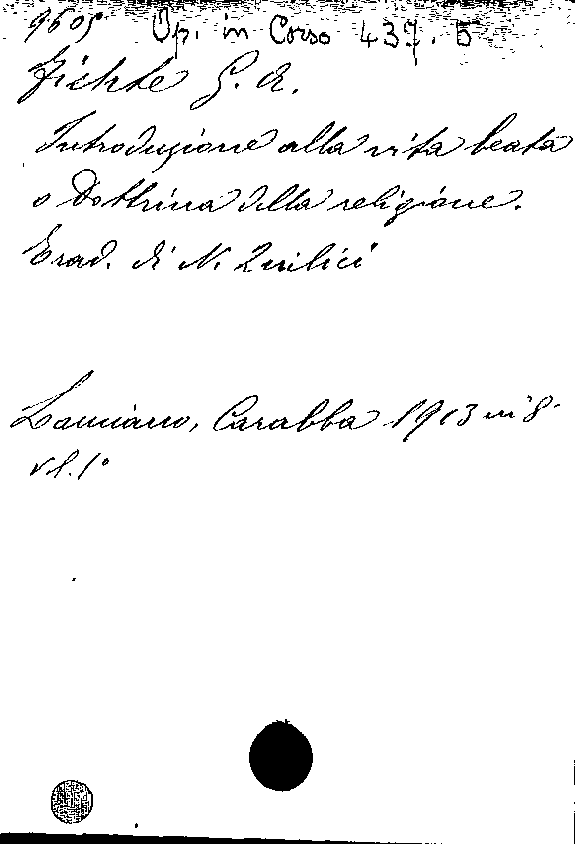 9605 Op. in Corso 437. 5
Fichte G. A.
Introduzione alla vita beata
o Dottrina della religione.
Trad. di N. Quilici
Lanciano, Carabba 1913 in 8°
vl. 1°